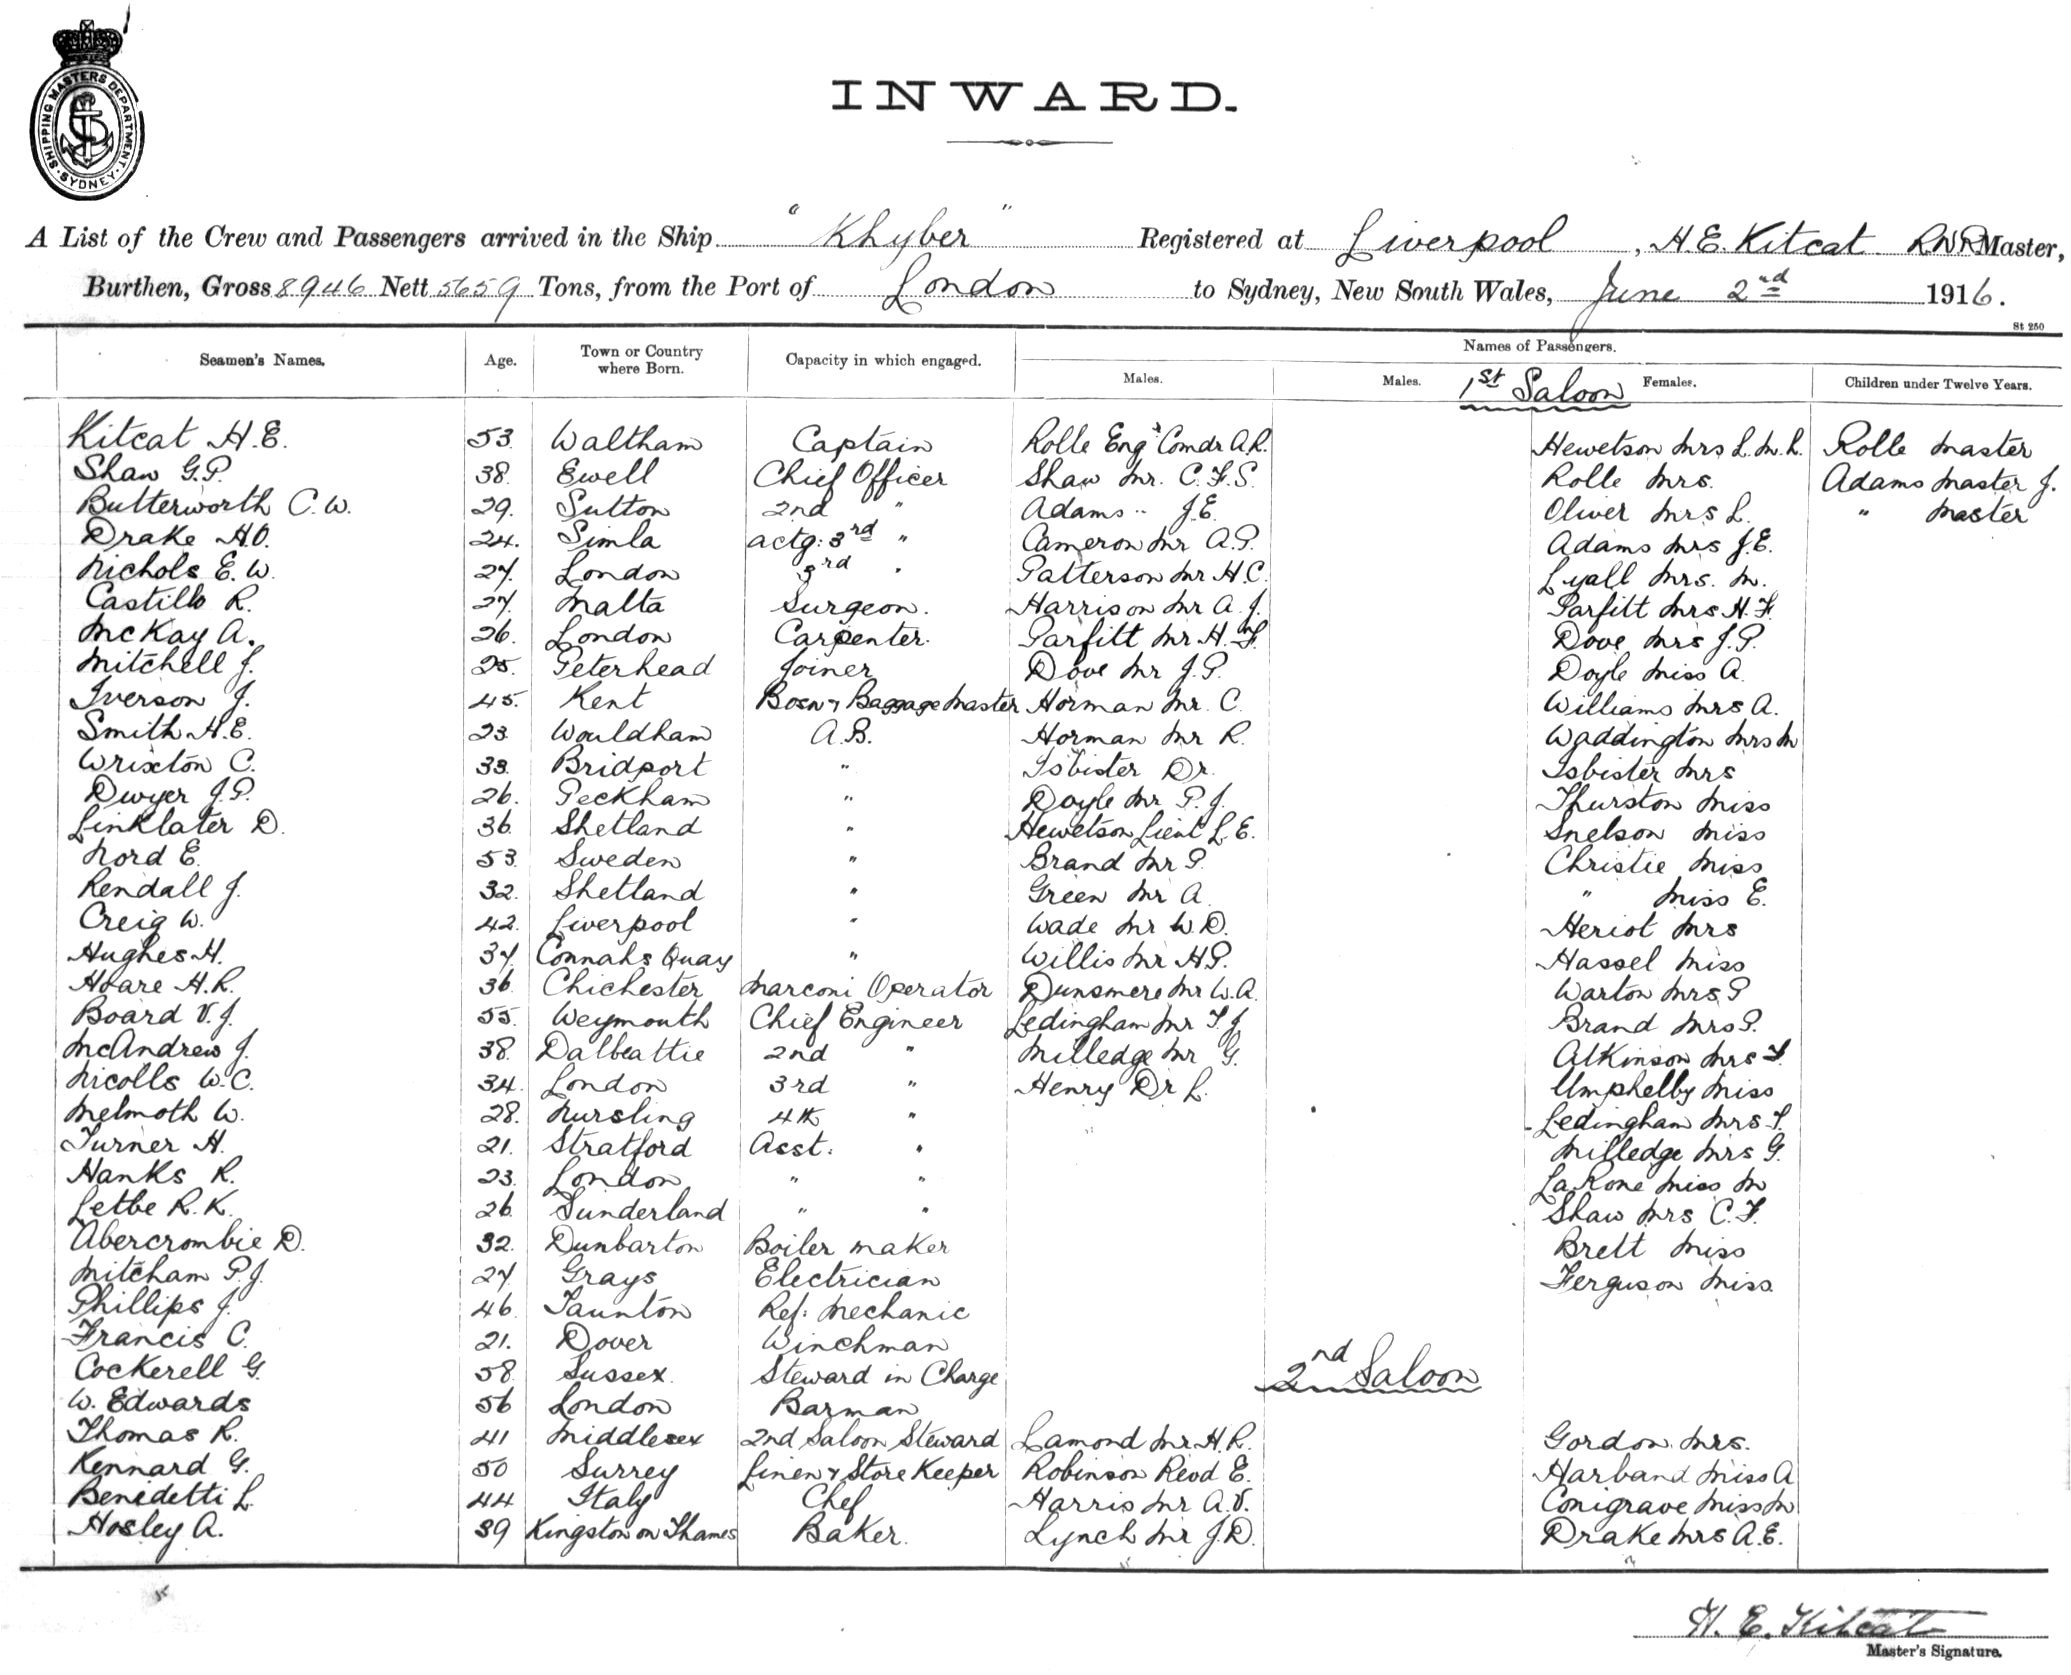 SHIPPING MASTERS DEPARTMENT. SYDNEY.
INWARD.
A List of the Crew and Passengers arrived in the Ship "Khyber" Registered at Liverpool, H.E. Kitcat RNR Master,
Burthen, Gross 8946 Nett 5659 Tons, from the Port of London to Sydney, New South Wales, June 2nd 1916.
St 250
Seamen's Names. Age. Town or Country where Born. Capacity in which engaged. Names of Passengers.
Males. Males. Females. Children under Twelve Years.
1st Saloon
Kitcat H.E. 53. Waltham Captain Rolle Engr Comdr A.R. Hewetson Mrs L.M.L. Rolle Master
Shaw G.P. 38. Ewell Chief Officer Shaw Mr. C.F.S. Rolle Mrs. Adams Master J.
Butterworth C.W. 29. Sutton 2nd " Adams " J.E. Oliver Mrs L. " Master
Drake H.O. 24. Simla actg: 3rd " Cameron Mr A.P. Adams Mrs J.E.
Nichols E.W. 27. London 3rd " Patterson Mr H.C. Lyall Mrs. M.
Castillo R. 27. Malta Surgeon. Harrison Mr A.J. Parfitt Mrs H.F.
McKay A. 26. London Carpenter. Parfitt Mr H.F. Dove Mrs J.P.
Mitchell J. 25. Peterhead Joiner Dove Mr J.P. Doyle Miss A.
Iverson J. 45. Kent Bosn & Baggage Master Horman Mr. C. Williams Mrs A.
Smith H.E. 23. Wouldham A.B. Horman Mr R. Waddington Mrs M
Wrixton C. 33. Bridport " Isbister Dr. Isbister Mrs
Dwyer J.P. 26. Peckham " Doyle Mr P.J. Thurston Miss
Linklater D. 36. Shetland " Hewetson Lieut L.E. Snelson Miss
Nord E. 53. Sweden " Brand Mr P. Christie Miss
Rendall J. 32. Shetland " Green Mr A. " Miss E.
Creig W. 42. Liverpool " Wade Mr W.D. Heriot Mrs
Hughes H. 37. Connahs Quay " Willis Mr H.P. Hassel Miss
Hoare H.R. 36. Chichester Marconi Operator Dunsmere Mr W.A. Warton Mrs P
Board V.J. 55. Weymouth Chief Engineer Ledingham Mr F.J. Brand Mrs P.
McAndrew J. 38. Dalbeattie 2nd " Milledge Mr G. Atkinson Mrs F.
Nicolls W.C. 34. London 3rd " Henry Dr L. Umphelby Miss
Melmoth W. 28. Nursling 4th " Ledingham Mrs F.
Turner H. 21. Stratford Asst. " Milledge Mrs G.
Hanks R. 23. London " " La Rone Miss M
Letbe R.K. 26. Sunderland " " Shaw Mrs C.F.
Abercrombie D. 32. Dunbarton Boiler maker Brett Miss
Mitcham P.J. 27. Grays Electrician Ferguson Miss
Phillips J. 46. Taunton Ref: Mechanic
Francis C. 21. Dover Winchman
2nd Saloon
Cockerell G. 58. Sussex. Steward in Charge
W. Edwards 56 London Barman
Thomas R. 41 Middlesex 2nd Saloon Steward Lamond Mr. H.R. Gordon Mrs.
Kennard G. 50 Surrey Linen & Store Keeper Robinson Revd E. Harband Miss A
Benedetti L. 44 Italy Chef Harris Mr A.V. Conigrave Miss M
Hosley A. 39 Kingston on Thames Baker. Lynch Mr J.D. Drake Mrs A.E.
H. E. Kitcat
Master's Signature.